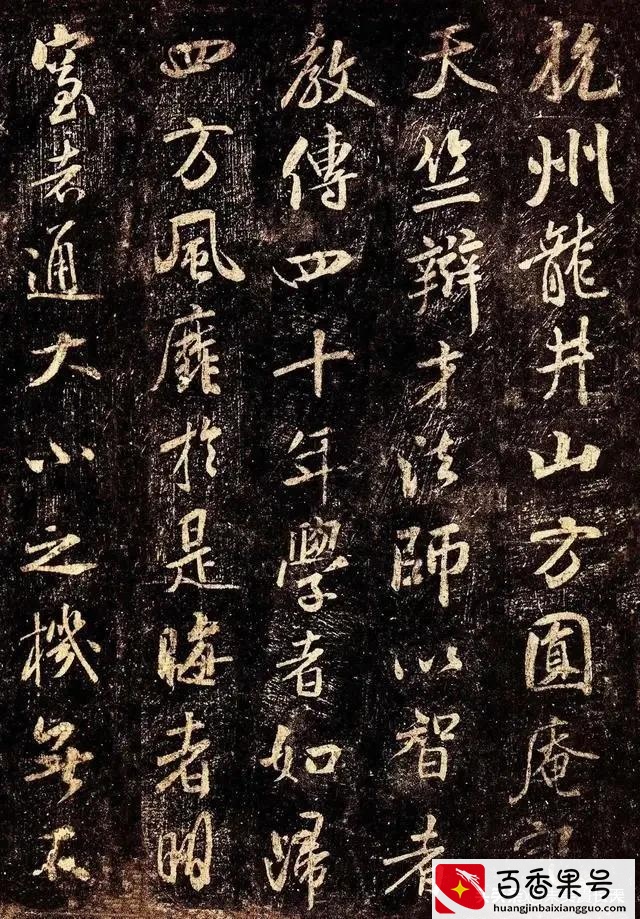 杭州龍井山方圓庵記
天竺辯才法師以智者
教傳四十年學者如歸
四方風靡於是晦者明
窒者通大小之機無不
百香果号
huangjinbaixiangguo.com